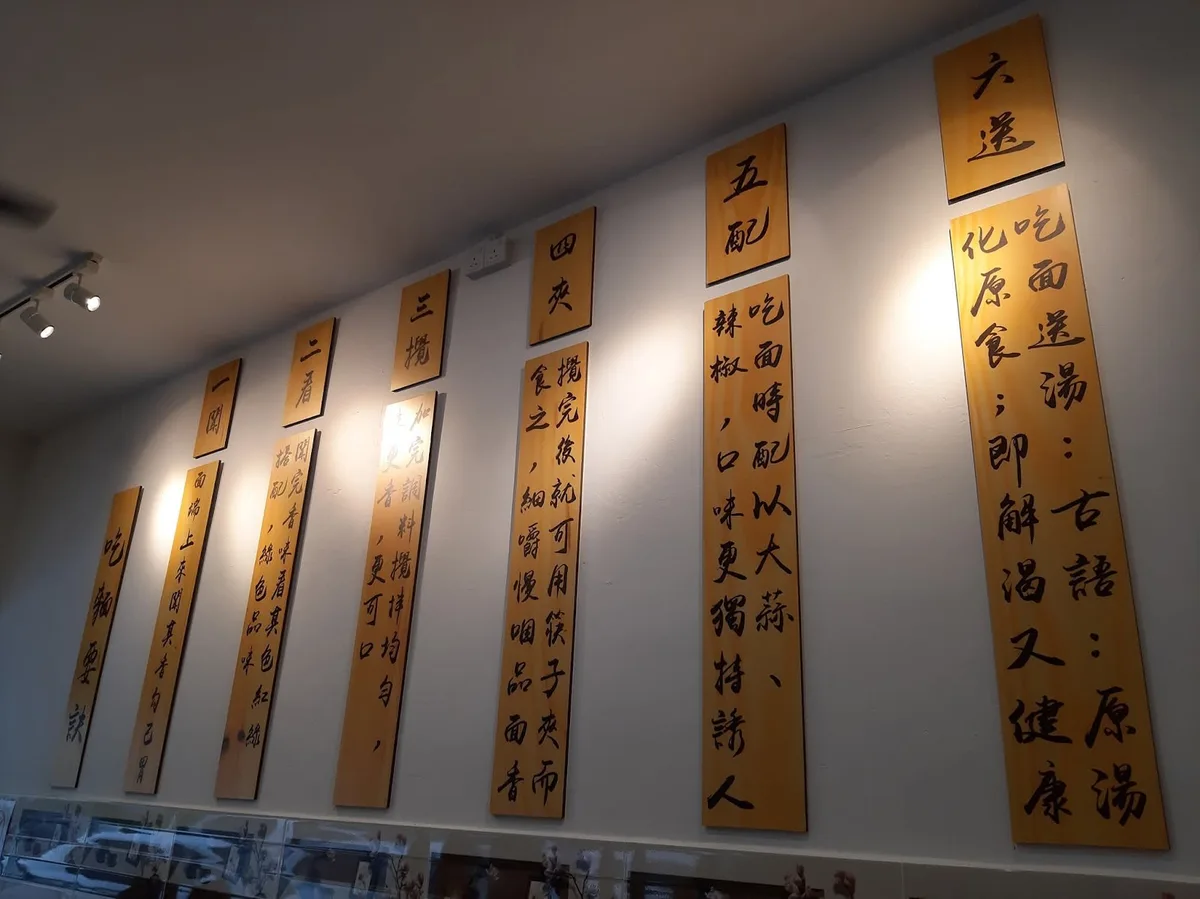 吃麵要訣
一聞
面端上來聞其香勾己胃
二看
聞完香味看其色紅綠
搭配，綠色品味
三攪
加完調料攪拌均勻，
更香，更可口
四夾
攪完後就可用筷子夾而
食之，細嚼慢咽品面香
五配
吃面時配以大蒜、
辣椒，口味更獨持誘人
六送
吃面送湯：古語：原湯
化原食；即解渴又健康